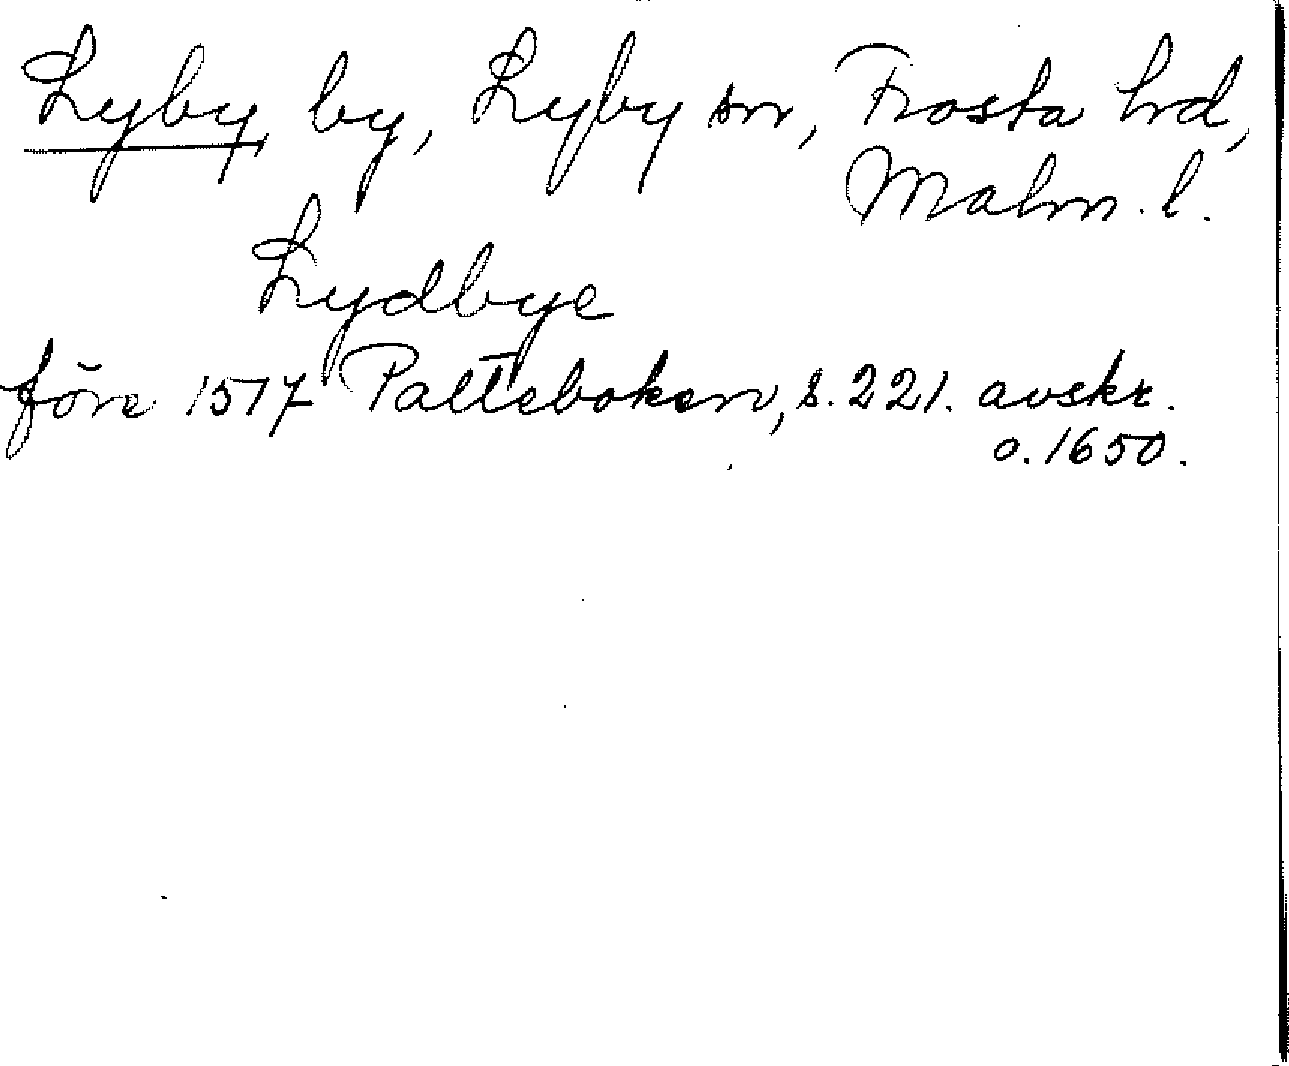 Lyby by, Lyby sn, Frosta hrd,
Malm. l.
Lydbye
före 1517 Palteboken, s. 221. avskr.
o. 1650.